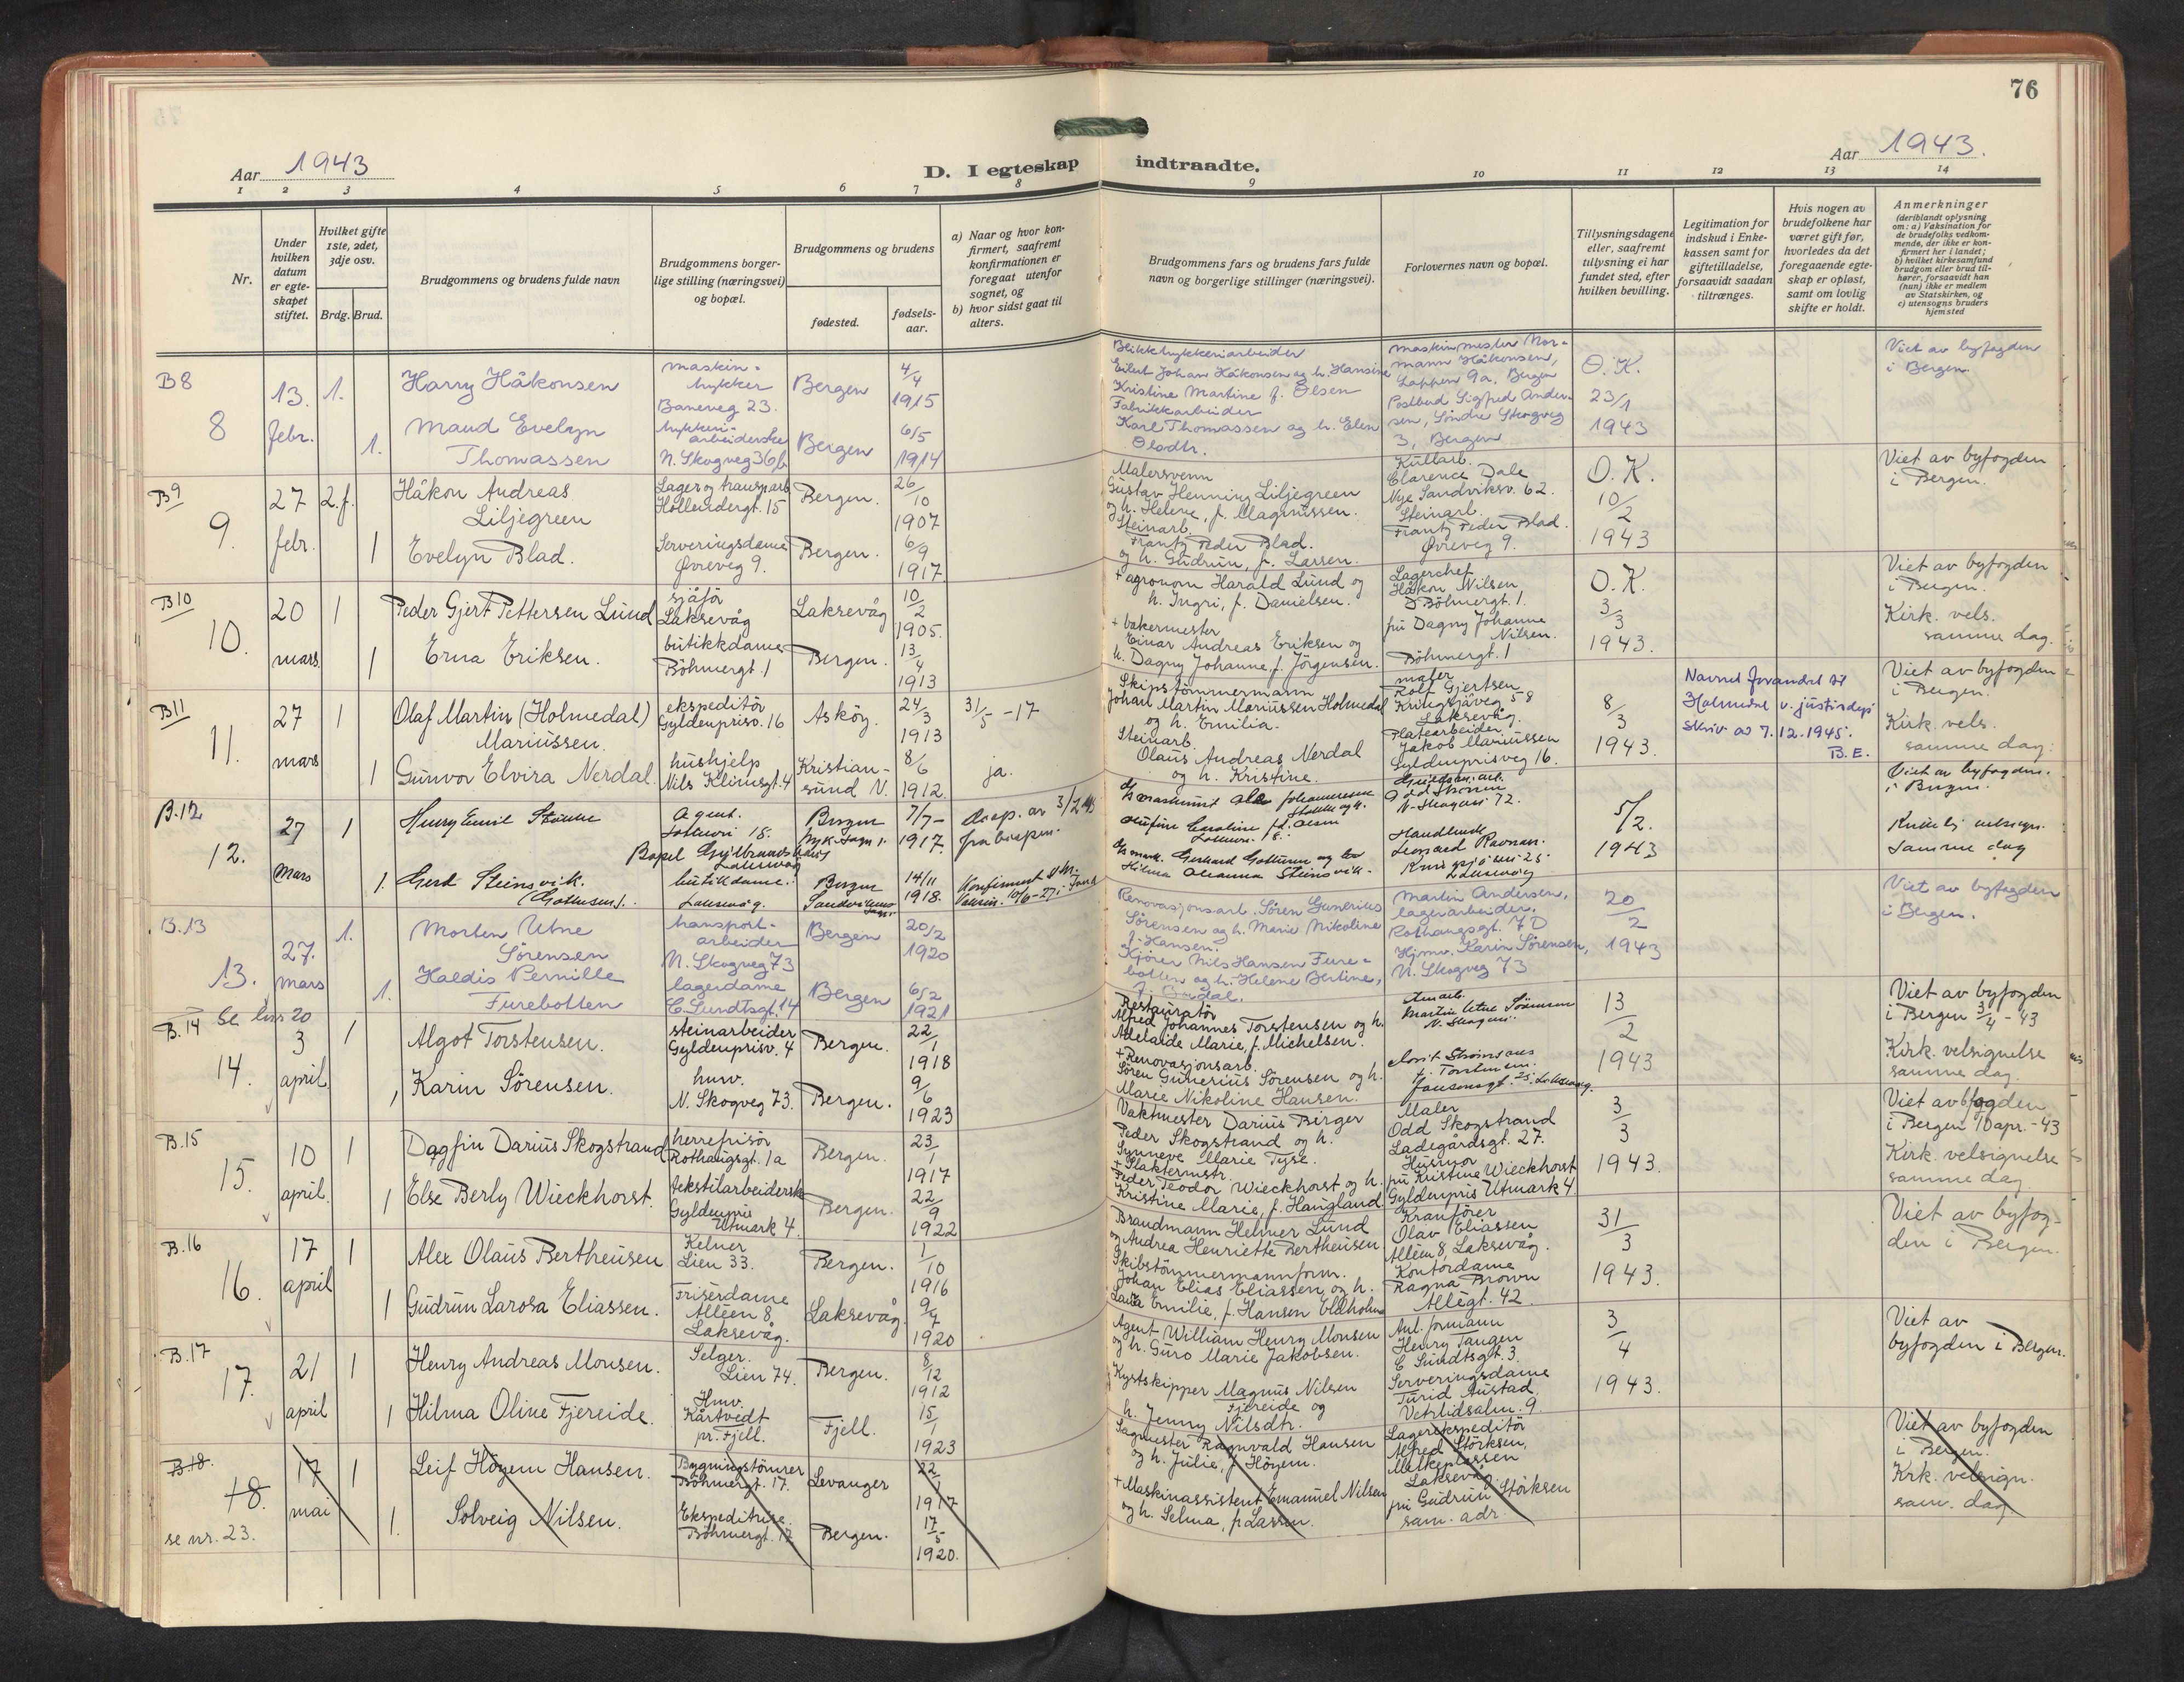 76
Aar 1943
D. I egteskap indtraadte.
Aar 1943.
1 2 3 4 5 6 7 8 9 10 11 12 13 14
Nr.
Under hvilken datum er egte-skapet stiftet.
Hvilket gifte 1ste, 2det, 3dje osv.
Brdg. Brud.
Brudgommens og brudens fulde navn
Brudgommens borger-lige stilling (næringsvei) og bopæl.
Brudgommens og brudens
fødested.
fødsels-aar.
a) Naar og hvor kon-firmert, saafremt konfirmationen er foregaat utenfor sognet, og
b) hvor sidst gaat til alters.
Brudgommens fars og brudens fars fulde navn og borgerlige stillinger (næringsvei).
Forlovernes navn og bopæl.
Tillysningsdagene eller, saafremt tillysning ei har fundet sted, efter hvilken bevilling.
Legitimation for indskud i Enke-kassen samt for giftetilladelse, forsaavidt saadan tiltrænges.
Hvis nogen av brudefolkene har været gift før, hvorledes da det foregaaende egte-skap er opløst, samt om lovlig skifte er holdt.
Anmerkninger
(deriblandt oplysning om: a) Vaksination for de brudefolks vedkom-mende, der ikke er kon-firmert her i landet; b) hvilket kirkesamfund brudgom eller brud til-hører, forsaavidt han (hun) ikke er medlem av Statskirken, og c) utensogns bruders hjemsted
B8
8
13. febr.
1.
Harry Håkonsen
maskin-trykker
Baneveg 23.
Bergen
4/4 1915
Blikktrykkeriarbeider
Eilert Johan Håkonsen og h. Hansine
Kristine Martine f. Olsen
maskinmester Nor-
mann Håkonsen,
Lappen 9a, Bergen
O.K.
23/1
1943
Viet av byfogden
i Bergen.
1.
Maud Evelyn
Thomassen
trykkeri-
arbeiderske
N. Skogveg 36b
Bergen
6/5 1914
Fabrikkarbeider
Karl Thomassen og h. Elen
Olsdtr.
Postbud Sigfred Ander-
sen, Søndre Skogveg
3, Bergen
B9
9.
27 febr.
2.f.
Håkon Andreas
Liljegreen
Lager og transp.arb
Hollendergt. 15
Bergen.
26/10 1907
Malersvenn
Gustav Henning Liljegreen
og h. Helene, f. Magnussen.
Kullarb.
Clarence Dale
Nye Sandviksv. 62.
O.K.
10/2
1943
Viet av byfogden
i Bergen.
1
Evelyn Blad.
Serveringsdame
Øvreveg 9.
Bergen.
6/9 1917
Steinarb.
Frantz Peder Blad.
og h. Gudrun, f. Larsen.
Steinarb.
Frantz Peder Blad.
Øvreveg 9.
B10
10.
20 mars.
1
Peder Gjert Pettersen Lund
sjåfør
Laksevåg
Laksevåg
10/2 1905.
+ agronom Harald Lund og
h. Ingri, f. Danielsen.
Lagerchef
Håkon Nilsen
Böhmergt. 1.
O.K.
3/3
1943.
Viet av byfogden
i Bergen.
Kirk. vels.
samme dag.
1
Erna Eriksen.
butikkdame
Böhmergt. 1
Bergen.
13/4 1913
+ bakermester
Einar Andreas Eriksen og
h. Dagny Johanne, f. Jörgensen.
fru Dagny Johanne
Nilsen.
Böhmergt. 1
B11
11.
27 mars
1
Olaf Martin (Holmedal)
Mariussen.
ekspeditör
Gyldenprisv. 16
Asköy.
24/3 1913
31/5 -17
Skipstömmermann
Johan Martin Mariussen Holmedal
og h. Emilia.
maler
Rolf Gjertsen
Kringsjåveg 58
Laksevåg.
8/3
1943.
Navnet forandret til
Holmedal v. justisdep.
skriv av 7.12.1945.
B.E.
Viet av byfogden
i Bergen.
Kirk. vels.
samme dag.
1
Gunvor Elvira Nerdal.
hushjelp
Nils Klimsgt. 4
Kristian-
sund N.
8/6 1912.
ja.
Steinarb.
Olaus Andreas Nerdal
og h. Kristine.
Platearbeider
Jakob Mariussen
Gyldenprisveg 16.
B.12
12.
27 Mars
1
Henry Emil
Agent.
Bergen
7/7- 1917.
disp. av 3/2 1943
fra bispen.
N. Skogvei 72.
5/2.
1943
Viet av byfogden.
i Bergen.
Kirkelig velsign.
samme dag
1.
Gerd Steinsvik.
(Gottesen).
butikdame.
Laksevåg.
Bergen
14/11 1918.
Gerhard
Hilma Oleanna Steinsvik.
Handlende
Leonard Ravnan.
Laksevåg
B.13
13.
Se linr 20
27. mars
1.
Morten Utne
Sörensen
transport-
arbeider
N. Skogveg 73
Bergen
20/2 1920
Renovasjonsarb. Sören Gunerius
Sörensen og h. Marie Nikoline
f. Hansen.
Martin Andersen,
lagerarbeider,
Rothaugsgt. 7D
20/2
1943
Viet av byfogden
i Bergen.
1.
Haldis Pernille
Furebotten
lagerdame
C. Sundtsgt. 14
Bergen
6/2 1921
Kjörer Nils Hansen Fure-
botten og h. Helene Bertine,
Hjmv. Karin Sörensen,
N. Skogveg 73
B.14
14.
3 april
1
Algot Torstensen.
steinarbeider
Gyldenprisv. 4
Bergen.
22/1 1918
Restauratör
Alfred Johannes Torstensen og h.
Adelaide Marie, f. Michelsen.
Martin Utne Sörensen
N. Skogvei
13/2
1943
Viet av byfogden
i Bergen 3/4 - 43
Kirk. velsignelse
samme dag.
1
Karin Sörensen.
husv.
N. Skogveg 73.
Bergen.
9/6 1923
+ Renovasjonsarb.
Sören Gunerius Sörensen og h.
Marie Nikoline Hansen.
B.15
15.
10 april.
1
Dagfin Darius Skogstrand
herrefrisör
Rothaugsgt. 1a
Bergen.
23/1 1917
Vaktmester Darius Birger
Peder Skogstrand og h.
Synneve Marie Tyse.
Maler
Odd Skogstrand
Ladegårdsgt. 27.
3/3
1943.
Viet av byfogden
i Bergen 10 apr. -43
Kirk. velsignelse
samme dag.
1
Else Berly Wieckhorst.
tekstilarbeiderske
Gyldenpris
Utmark 4.
Bergen.
22/9 1922
+ Slaktermstr.
Peder Teodor Wieckhorst og h.
Kristine Marie, f. Haugland
Husmor
fru Kristine Wieckhorst
Gyldenpris Utmark 4
B.16
16.
17 april
1
Alex Olaus Bertheusen
Kelner
Lien 33.
Bergen.
1/10 1916
Brandmann Helmer Lund
og Andrea Henriette Bertheusen
Kranförer
Olav Eliassen
Alléen 8, Laksevåg.
31/3
1943.
Viet av byfog-
den i Bergen.
1
Gudrun Larosa Eliassen.
Friserdame
Alléen 8
Laksevåg.
Laksevåg.
9/4 1920
Skibstömmermannform.
Johan Elias Eliassen og h.
Laura Emilie, f. Hansen Eldholm
Kontordame
Ragna Brown
Allégt. 42.
B.17
17.
21 april
1
Henry Andreas Monsen.
Selger.
Lien 74.
Bergen.
8/12 1912
Agent William Henry Monsen
og h. Guro Marie Jakobsen.
Anl. formann
Henry Tangen
C Sundtsgt. 3.
3/4
1943.
Viet av
byfogden i Bergen.
1
Hilma Oline Fjereide.
Hmv.
Kårtvedt
pr. Fjell.
Fjell.
15/1 1923
Kystskipper Magnus Nilsen
Fjereide og
h. Jenny Nilsdtr.
Serveringsdame
Turid Austad
Vetrlidsalm. 9.
B.18.
18.
se nr. 23.
17 mai
1
Leif Höyem Hansen.
Bygningstömrer
Böhmergt. 17.
Levanger
22/1 1917
Sagmester Ragnvald Hansen
og h. Julie, f. Höyem.
Lagerekspeditör
Alfred Störksen,
Melkeplassen
Laksevåg.
Viet av byfogden
i Bergen.
Krk. velsign.
sam. dag
1.
Solveig Nilsen.
Ekspeditrise.
Böhmergt. 17
Bergen.
17/5 1920.
+ Maskinassistent Emanuel Nilsen
og h. Selma, f. Larsen.
fru Gudrun Störksen
sam. adr.